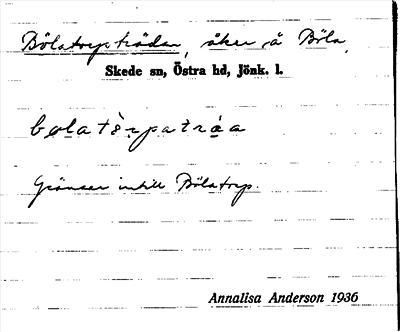 Bölatorpsträdan, åker å Böla,
Skede sn, Östra hd, Jönk. l.
Gränsar intill Bölatorp.
Annalisa Anderson 1936